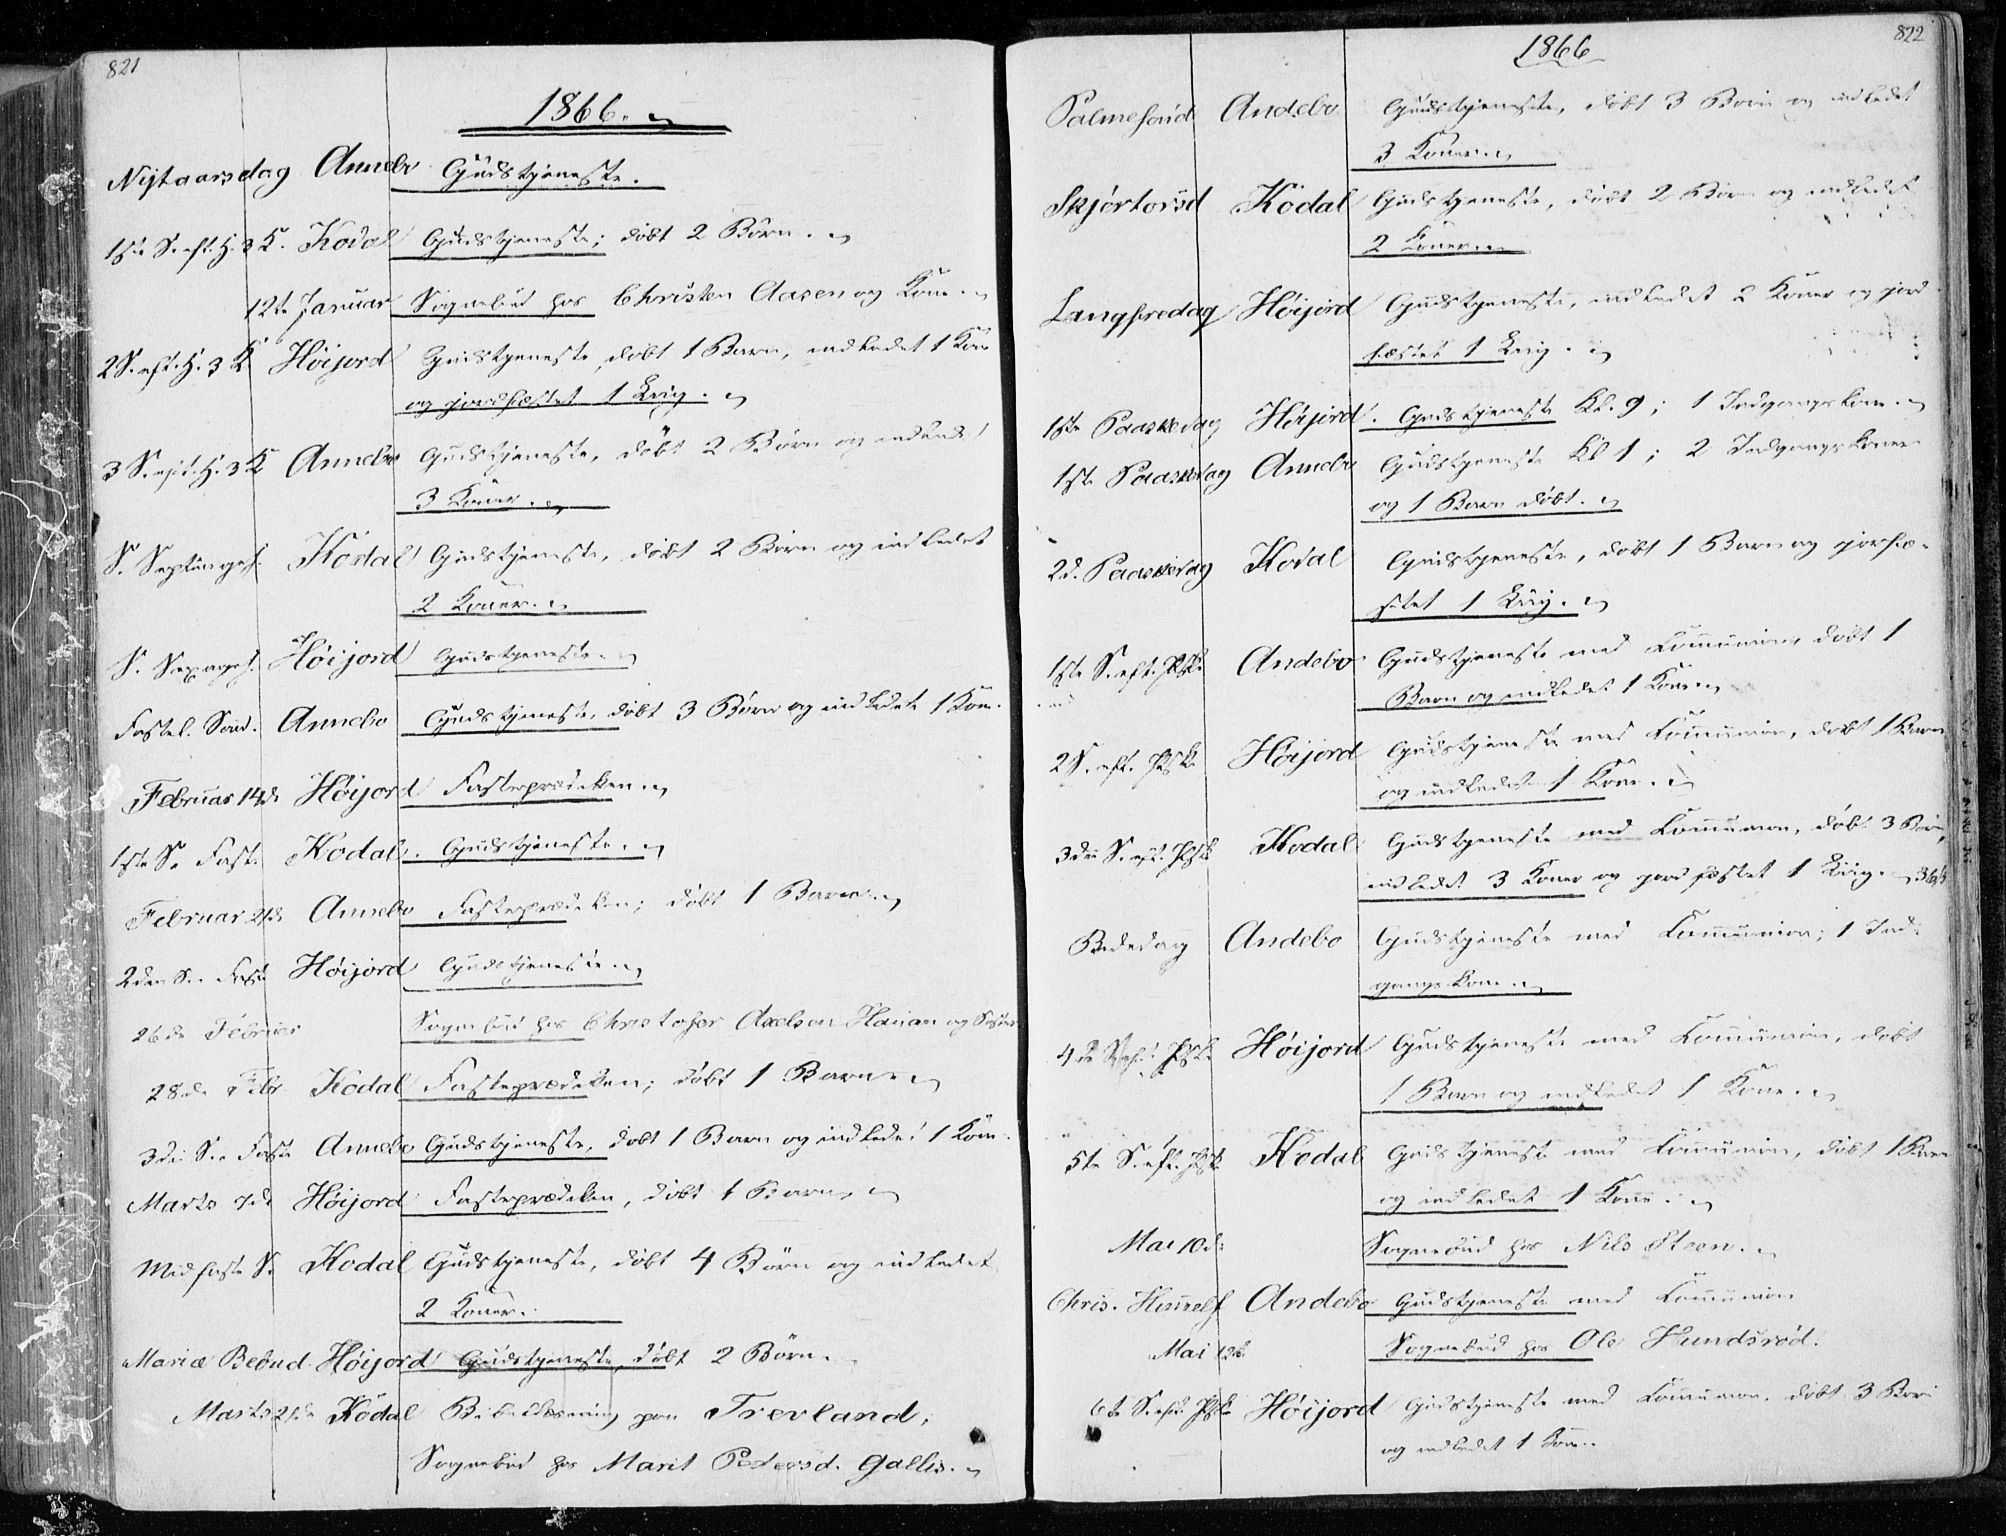 821
1866.
Nytaarsdag Annebo Gudstjeneste.
1ste S. eft. H. 3 K. Kodal Gudstjeneste; døbt 2 Børn.
12te Januar Sognebud hos Christen Aasen og Kone.
2 S. eft. H. 3 K Høijord Gudstjeneste, døbt 1 Barn, indledet 1 Kone
og jordfæstet 1 Liig.
3 S. eft. H. 3 K Annebo Gudstjeneste, døbt 2 Børn og indledet
3 Koner.
S. Septuages. Kodal Gudstjeneste, døbt 2 Børn og indledet
2 Koner.
S. Sexages. Høijord Gudstjeneste.
Fastel. Sønd. Annebo Gudstjeneste, døbt 3 Børn og indledet 1 Kone.
Februar 14de Høijord Fasteprædiken.
1ste S. i Faste Kodal. Gudstjeneste.
Februar 21de Annebo Fasteprædiken; døbt 1 Barn.
2den S. i Faste Høijord Gudstjeneste.
26de Februar Sognebud hos Christofer Axelsen Hauan og
28de Febr Kodal Fasteprædiken; døbt 1 Barn.
3die S. i Faste Annebo Gudstjeneste, døbt 1 Barn og indledet 1 Kone.
Marts 7de Høijord Fasteprædiken, døbt 1 Barn.
Midfaste S. Kodal Gudstjeneste, døbt 4 Børn og indledet
2 Koner.
Mariæ Bebud. Høijord Gudstjeneste, døbt 2 Børn.
Marts 21de Kodal Bibellæsning paa Trevland,
Sognebud hos Marit Pedersd. Gallis.
822
1866
Palmesønd Andebo Gudstjeneste, døbt 3 Børn og indledet
3 Koner.
Skjertorsd Kodal Gudstjeneste, døbt 2 Børn og indledet
2 Koner.
Langfredag Høijord Gudstjeneste, indledet 2 Koner og jord-
fæstet 1 Liig.
1ste Paaskedag Høijord. Gudstjeneste Kl. 9; 1 Indgangskone.
1ste Paaskedag Annebo Gudstjeneste Kl 1; 2 Indgangskoner
og 1 Barn døbt.
2d. Paaskedag Kodal Gudstjeneste, døbt 1 Barn og jorfæ-
stet 1 Liig.
1ste S. eft. Pske Andebo Gudstjeneste med Communion, døbt 1
Barn og indledet 1 Kone.
2 S. eft. Pske Høijord Gudstjeneste med Communion, døbt 1 Barn
og indledet 1 Kone.
3die S. eft. Pske Kodal Gudstjeneste med Communion, døbt 3 Børn,
indledet 3 Koner og jordfæstet 1 Liig.
Bededag Andebo Gudstjeneste med Communion; 1 Ind-
gangskone.
4de S. eft. Pske Høijord Gudstjeneste med Communion, døbt
1 Barn og indledet 1 Kone.
5te S. eft. Pske Kodal Gudstjeneste med Communion, døbt 1 Barn
og indledet 1 Kone.
Mai 10de Sognebud hos Nils Steen.
Chris. Himmelf Andebo Gudstjeneste med Communion
Mai 12te Sognebud hos Ole Hundsrød.
6te S. eft. Pske Høijord Gudstjeneste med Communion. døbt 3 Børn
og indledet 1 Kone.